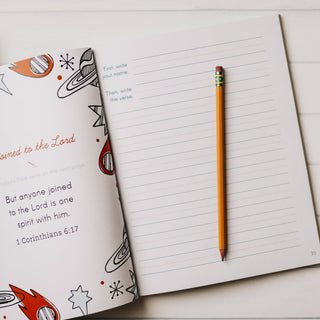 Joined to the Lord
But anyone joined
to the Lord is one
spirit with him.
1 Corinthians 6:17
First, write
your name.
Then, write
the verse.